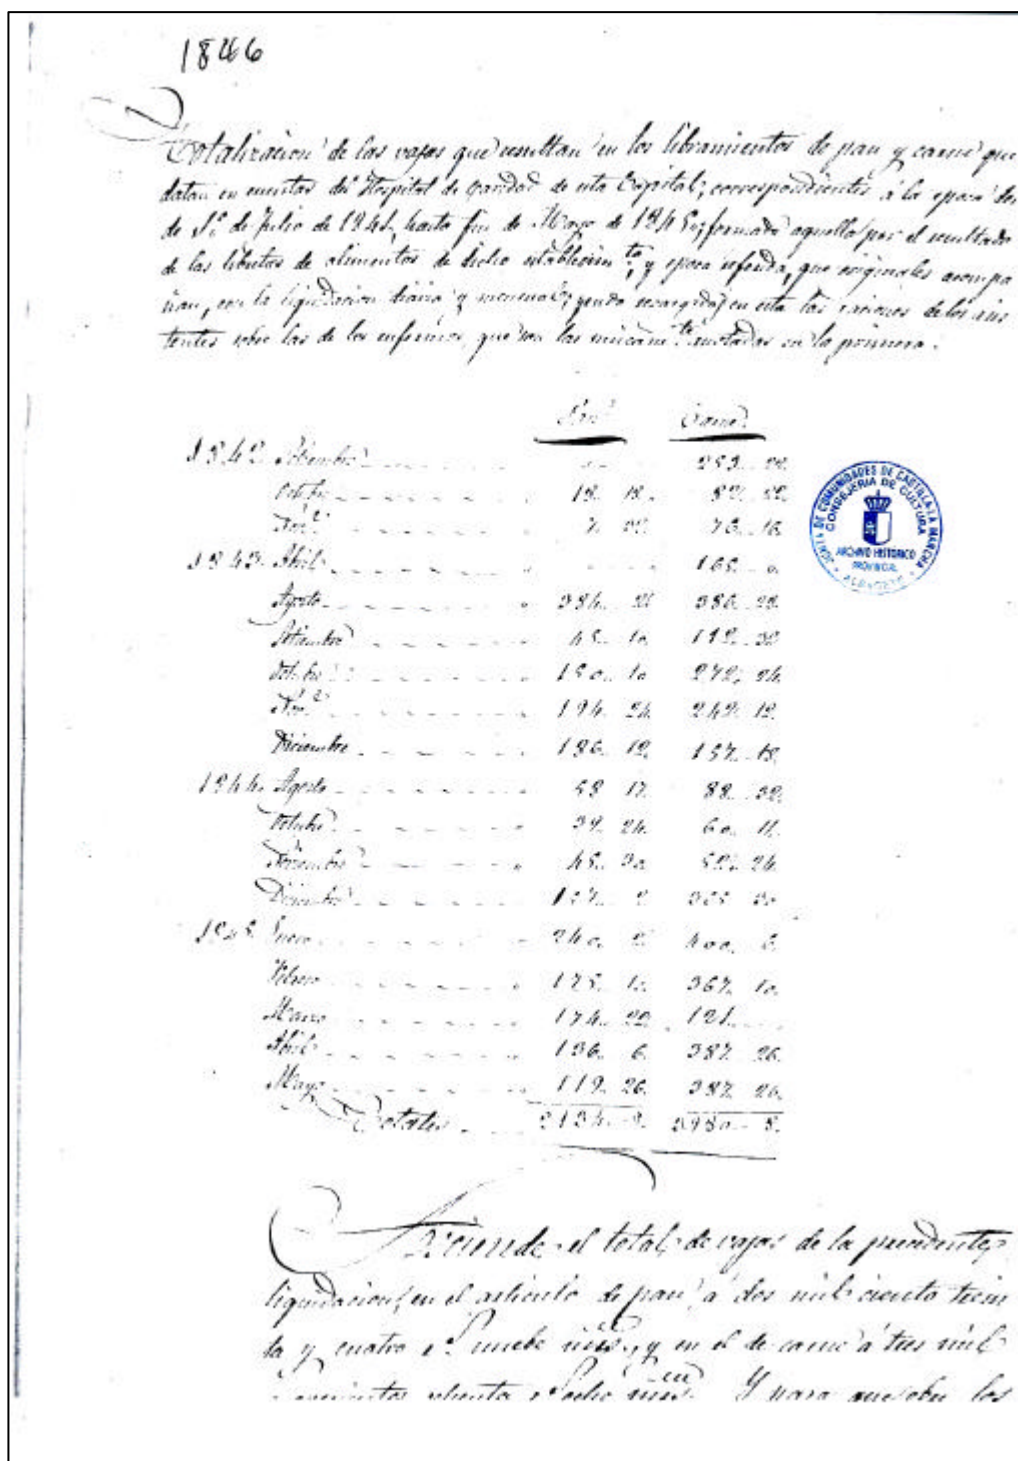 1846
Totalizacion de las vajas que resultan en los libramientos de pan y carne que
datan en cuentas del Hospital de Caridad de esta Capital, correspondientes á la epoca des
de 1º de Julio de 1841, hasta fin de Mayo de 1845, formada aquella por el resultado
de las libretas de alimentos de dicho establecimto, y epoca referida, que originales acompa
ñan, con la liquidacion diaria y mensual, en esta las raciones de los asis
tentes sobre las de los enfermos, que son las anotadas en la primera.
Pan Carne
1842 Setiembre
Octubre 12 12 82 22
Nove 7 76 16
1843 Abril 165 0
Agosto 384 386 28
Setiembre 45 10 192 32
Octubre 150 10 272 24
Nove 194 24 242 12
Diciembre 186 12 157 18
1844 Agosto 58 17 88 32
Octubre 39 24 60 11
Noviembre 45 30 52 24
Diciembre 157 2 30
1845 Enero 240 2 400 6
Febrero 175 10 367 10
Marzo 174 22 121
Abril 136 6 387 26
Mayo 119 26 387 26
Totales 2134 9 3980 8
JUNTA DE COMUNIDADES DE CASTILLA-LA MANCHA
CONSEJERIA DE CULTURA
ARCHIVO HISTORICO
PROVINCIAL
ALBACETE
Asciende el total de vajas de la precedente
liquidacion, en el articulo de pan á dos mil ciento trein
ta y cuatro rs nuebe mrs, y en el de carne á tres mil
novecientos ochenta rs ocho mrs. Y para que obre los